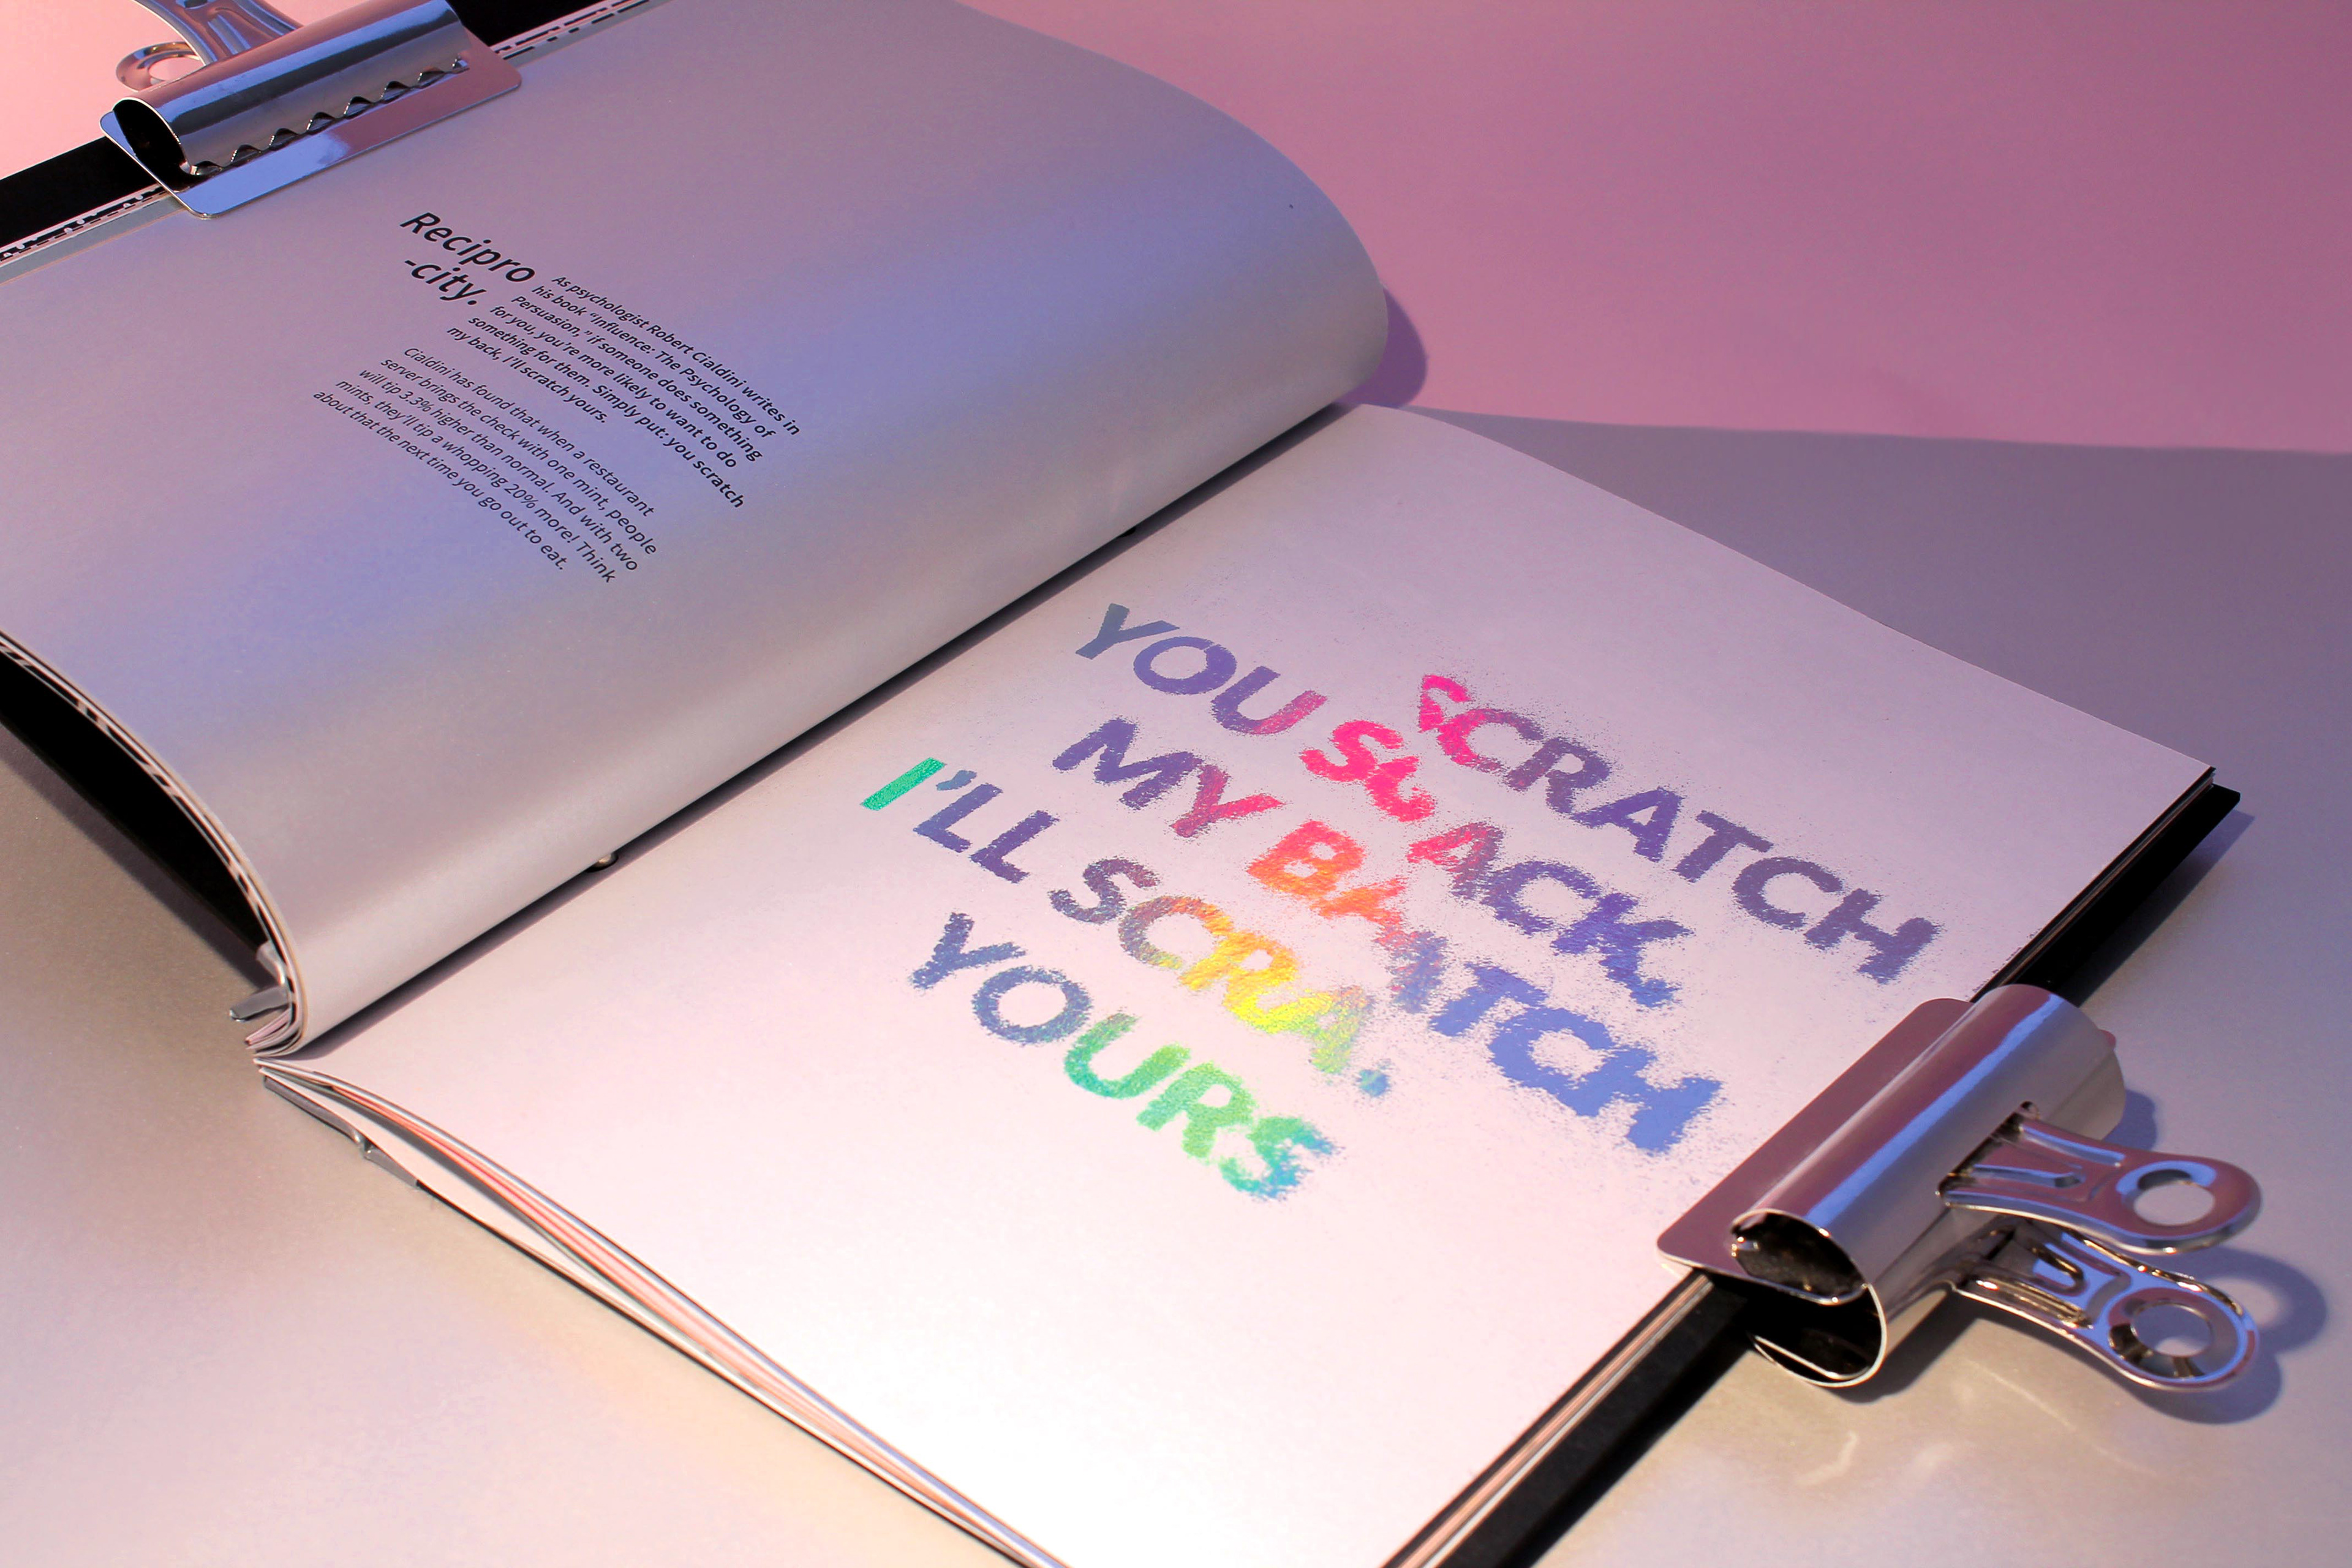 Recipro
-city.
As psychologist Robert Cialdini writes in
his book “Influence: The Psychology of
Persuasion,” if someone does something
for you, you’re more likely to want to do
something for them. Simply put: you scratch
my back, I’ll scratch yours.
Cialdini has found that when a restaurant
server brings the check with one mint, people
will tip 3.3% higher than normal. And with two
mints, they’ll tip a whopping 20% more! Think
about that the next time you go out to eat.
YOU SCRATCH
MY BACK
I’LL SCRATCH
YOURS